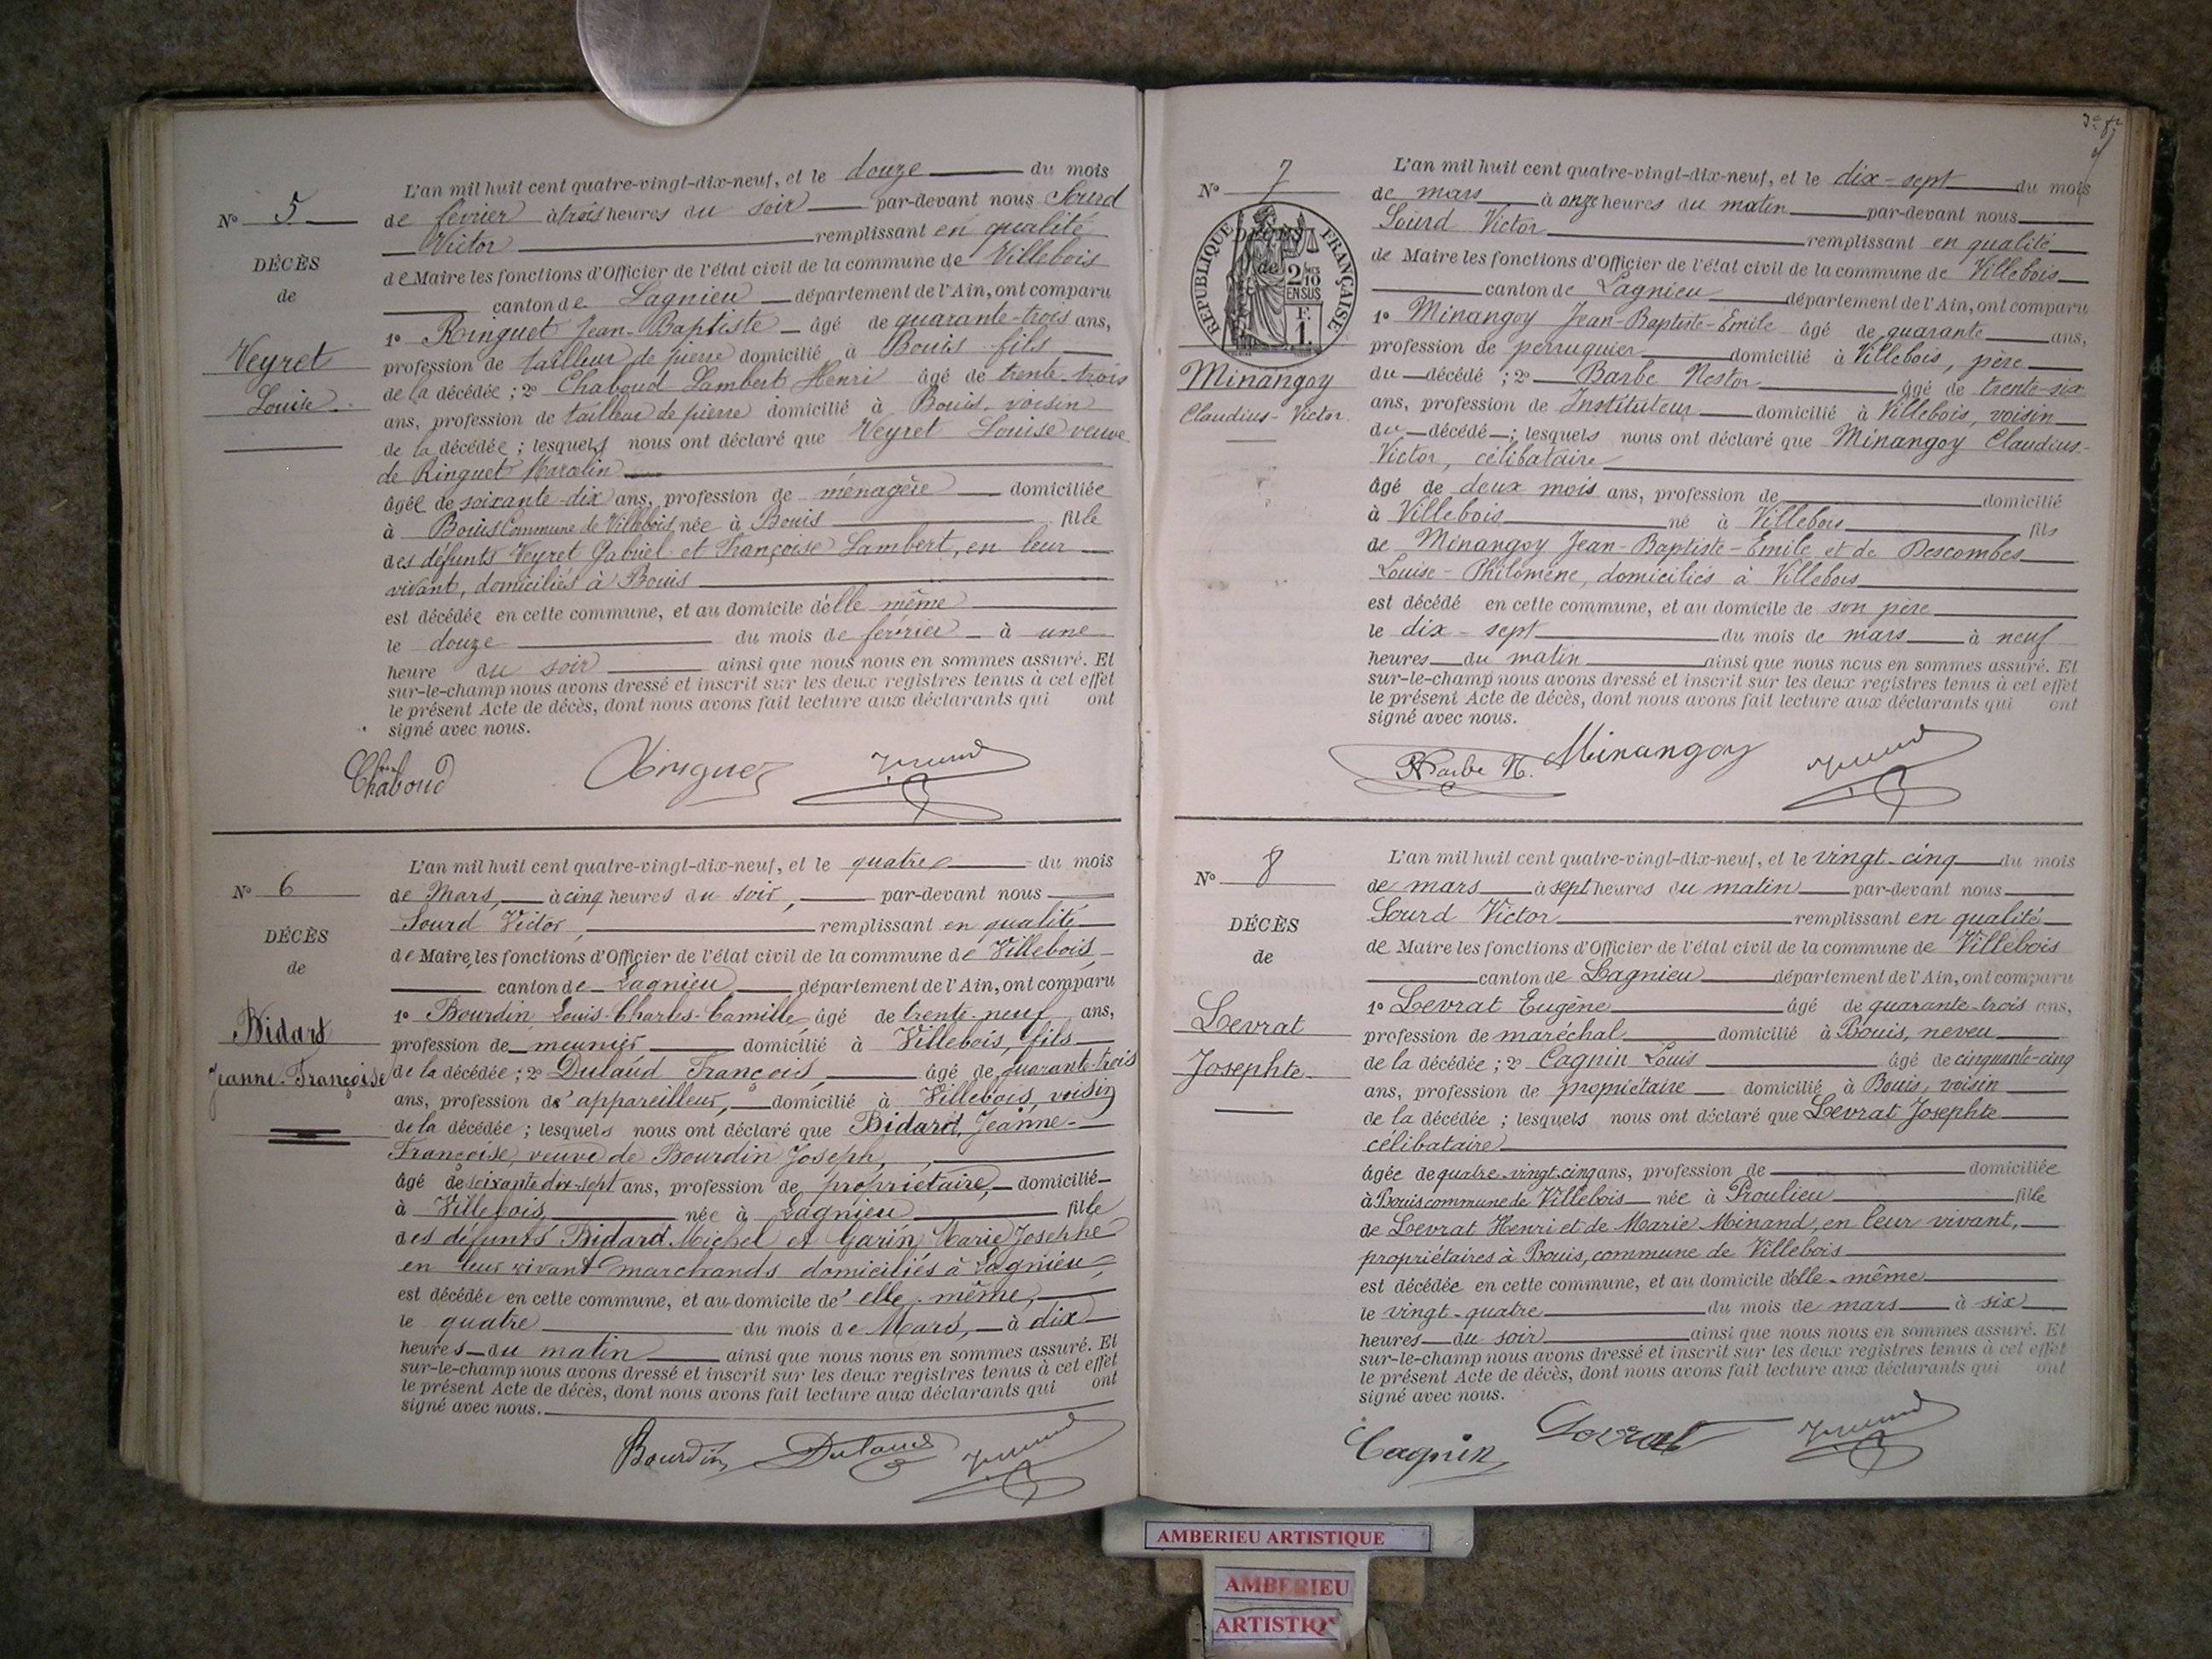 N° 5
DÉCÈS
de
Veyret
Louise
L'an mil huit cent quatre-vingt-dix-neuf, et le douze du mois
de février à trois heures du soir par-devant nous Sourd
Victor remplissant en qualité
de Maire les fonctions d'Officier de l'état civil de la commune de Villebois
canton de Lagnieu département de l'Ain, ont comparu
1° Ringuet Jean-Baptiste âgé de quarante-trois ans,
profession de tailleur de pierre domicilié à Bouis fils
de la décédée ; 2° Chaboud Lambert Henri âgé de trente-trois
ans, profession de tailleur de pierre domicilié à Bouis, voisin
de la décédée ; lesquels nous ont déclaré que Veyret Louise veuve
de Ringuet Marcelin
âgée de soixante-dix ans, profession de ménagère domiciliée
à Bouis Commune de Villebois née à Bouis fille
des défunts Veyret Gabriel et Françoise Lambert, en leur
vivant, domiciliés à Bouis
est décédée en cette commune, et au domicile d'elle même
le douze du mois de février à une
heure du soir ainsi que nous nous en sommes assuré. Et
sur-le-champ nous avons dressé et inscrit sur les deux registres tenus à cet effet
le présent Acte de décès, dont nous avons fait lecture aux déclarants qui ont
signé avec nous.
Chaboud Ringuet
N° 6
DÉCÈS
de
Bidard
Jeanne-Françoise
L'an mil huit cent quatre-vingt-dix-neuf, et le quatre du mois
de Mars, à cinq heures du soir, par-devant nous
Sourd Victor, remplissant en qualité
de Maire, les fonctions d'Officier de l'état civil de la commune de Villebois,
canton de Lagnieu, département de l'Ain, ont comparu
1° Bourdin Louis-Charles-Camille, âgé de trente-neuf ans,
profession de meunier domicilié à Villebois, fils
de la décédée ; 2° Dulaud François, âgé de quarante-trois
ans, profession d'appareilleur, domicilié à Villebois, voisin
de la décédée ; lesquels nous ont déclaré que Bidard, Jeanne-
Françoise, veuve de Bourdin Joseph,
âgé de soixante dix-sept ans, profession de propriétaire, domicilié
à Villebois née à Lagnieu fille
des défunts Bidard Michel et Garin Marie Josephe
en leur vivant marchands domiciliés à Lagnieu,
est décédée en cette commune, et au domicile d'elle-même,
le quatre du mois de Mars, à dix
heures du matin ainsi que nous nous en sommes assuré. Et
sur-le-champ nous avons dressé et inscrit sur les deux registres tenus à cet effet
le présent Acte de décès, dont nous avons fait lecture aux déclarants qui ont
signé avec nous.
Bourdin Dulaud
N° 7
RÉPUBLIQUE FRANÇAISE
DÉCÈS
de
2/10 MES
EN SUS
F.
1.
Minangoy
Claudius-Victor.
L'an mil huit cent quatre-vingt-dix-neuf, et le dix-sept du mois
de mars à onze heures du matin par-devant nous
Sourd Victor remplissant en qualité
de Maire les fonctions d'Officier de l'état civil de la commune de Villebois
canton de Lagnieu département de l'Ain, ont comparu
1° Minangoy Jean-Baptiste-Emile âgé de quarante ans,
profession de perruquier domicilié à Villebois, père
du décédé ; 2° Barbe Nestor âgé de trente-six
ans, profession de Instituteur domicilié à Villebois, voisin
du décédé ; lesquels nous ont déclaré que Minangoy Claudius-
Victor, célibataire
âgé de deux mois ans, profession de domicilié
à Villebois né à Villebois fils
de Minangoy Jean-Baptiste-Emile et de Descombes
Louise-Philomène, domiciliés à Villebois
est décédé en cette commune, et au domicile de son père
le dix-sept du mois de mars à neuf
heures du matin ainsi que nous nous en sommes assuré. Et
sur-le-champ nous avons dressé et inscrit sur les deux registres tenus à cet effet
le présent Acte de décès, dont nous avons fait lecture aux déclarants qui ont
signé avec nous.
Barbe N. Minangoy
N° 8
DÉCÈS
de
Levrat
Josephte
L'an mil huit cent quatre-vingt-dix-neuf, et le vingt-cinq du mois
de mars à sept heures du matin par-devant nous
Sourd Victor remplissant en qualité
de Maire les fonctions d'Officier de l'état civil de la commune de Villebois
canton de Lagnieu département de l'Ain, ont comparu
1° Levrat Eugène âgé de quarante-trois ans,
profession de maréchal domicilié à Bouis, neveu
de la décédée ; 2° Cagnin Louis âgé de cinquante-cinq
ans, profession de propriétaire domicilié à Bouis, voisin
de la décédée ; lesquels nous ont déclaré que Levrat Josephte
célibataire
âgée de quatre-vingt-cinq ans, profession de domiciliée
à Bouis commune de Villebois née à Proulieu fille
de Levrat Henri et de Marie Minand, en leur vivant,
propriétaires à Bouis, commune de Villebois
est décédée en cette commune, et au domicile d'elle-même
le vingt-quatre du mois de mars à six
heures du soir ainsi que nous nous en sommes assuré. Et
sur-le-champ nous avons dressé et inscrit sur les deux registres tenus à cet effet
le présent Acte de décès, dont nous avons fait lecture aux déclarants qui ont
signé avec nous.
Cagnin Levrat
AMBERIEU ARTISTIQUE
AMBERIEU
ARTISTIQ